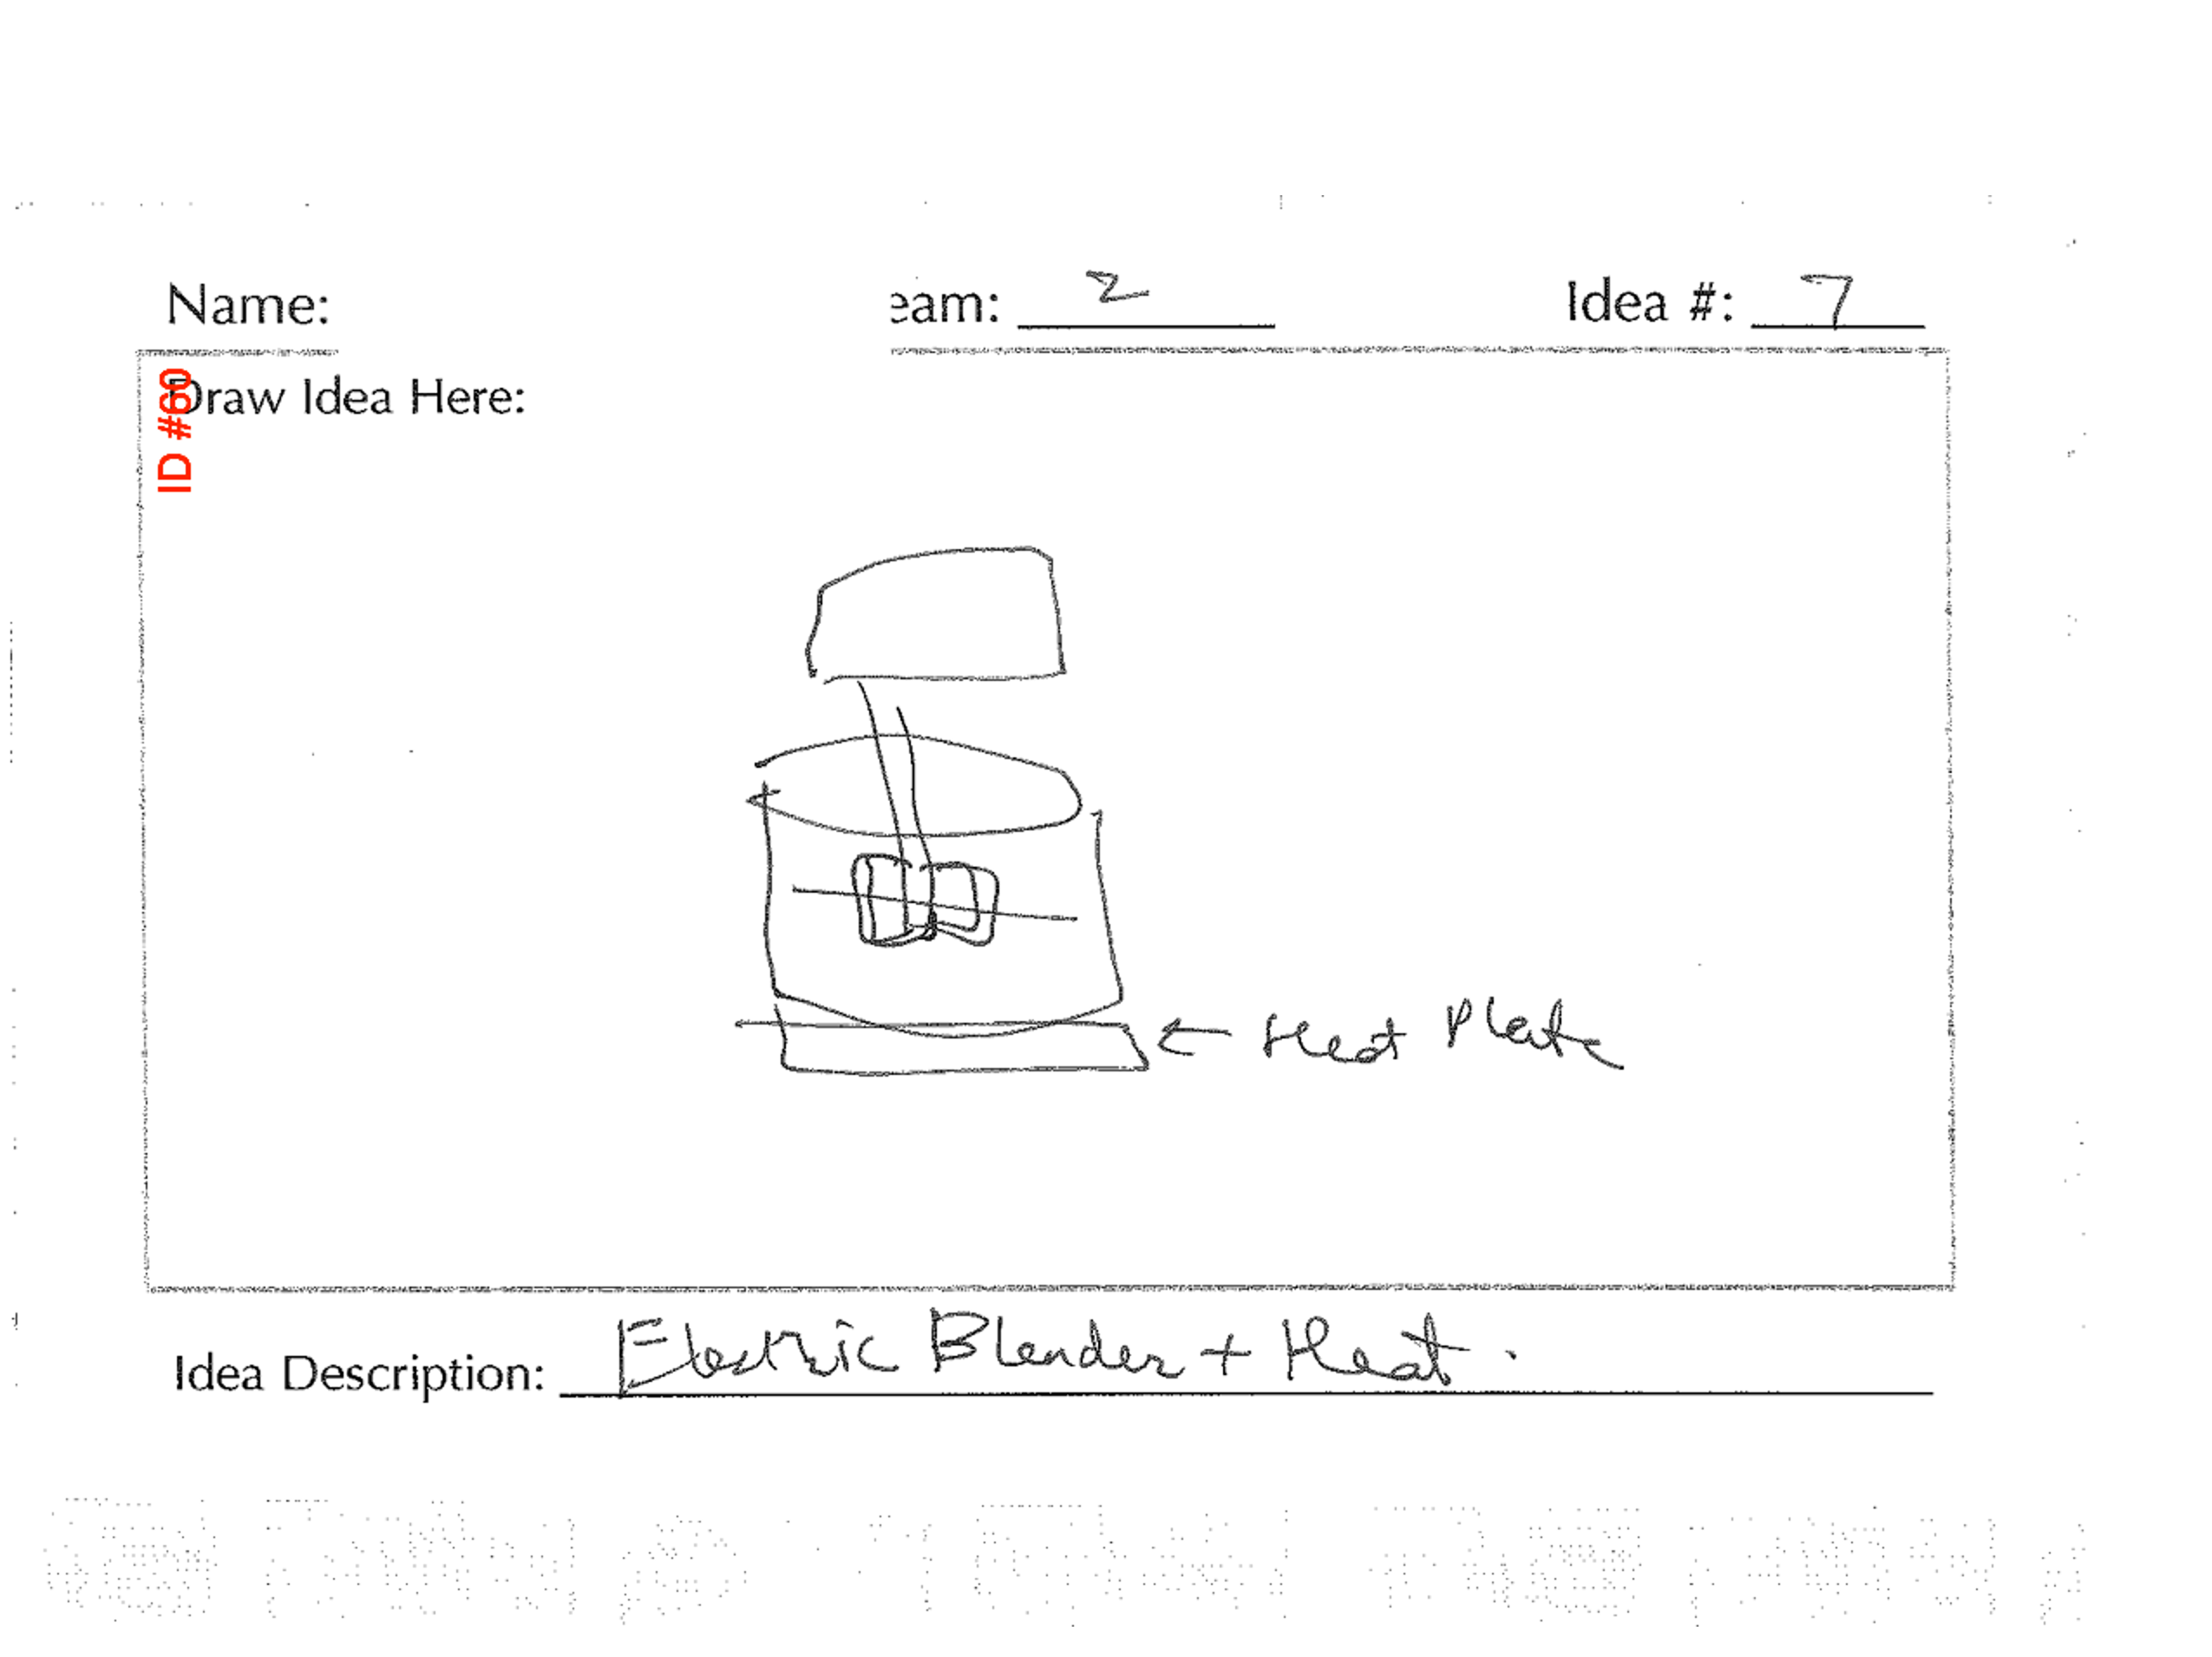 Name:
eam: 2
Idea #: 7
ID #60
Draw Idea Here:
← Heat Plate
Idea Description: Electric Blender + Heat.